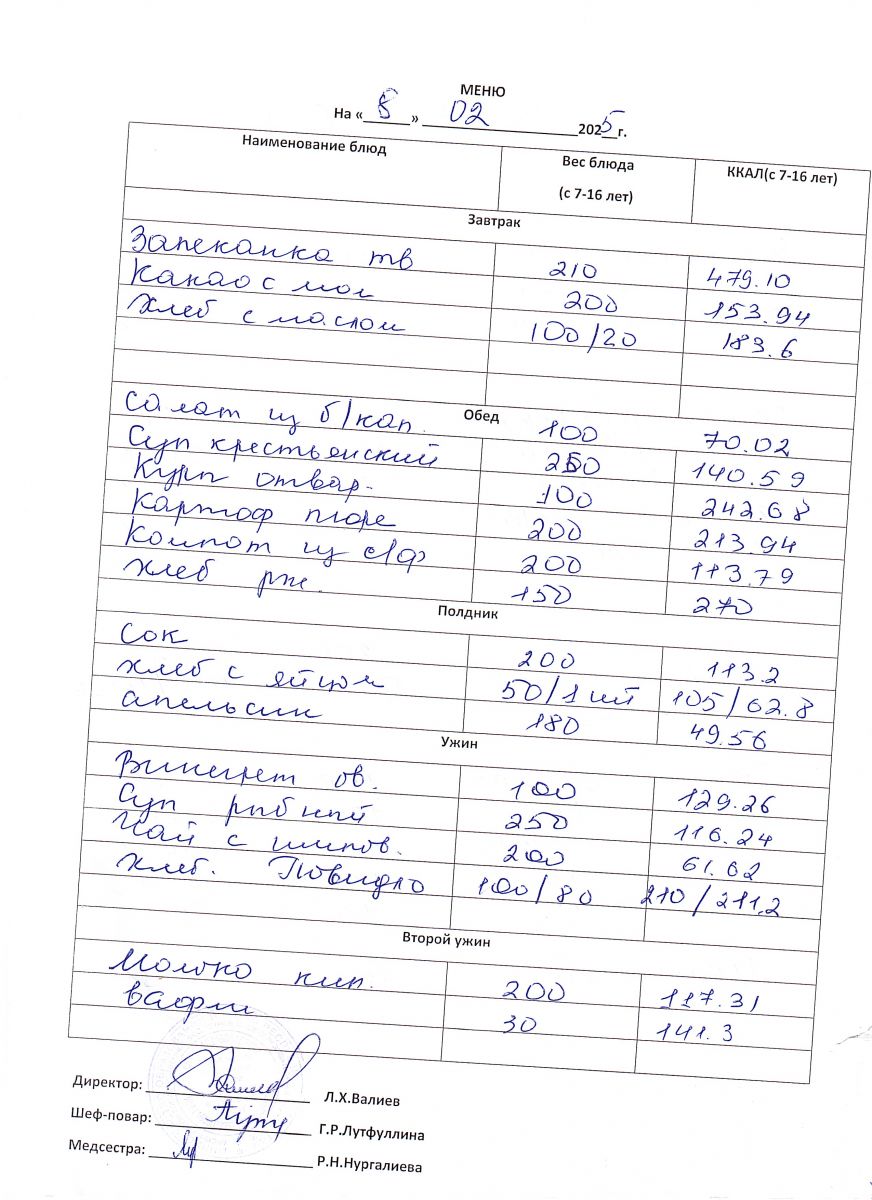 МЕНЮ
На «8» 02 2025 г.
Наименование блюд Вес блюда (с 7-16 лет) ККАЛ(с 7-16 лет)
Завтрак
Запеканка тв 210 479.10
Какао с мол 200 153.94
Хлеб с маслом 100/20 183.6
Обед
Салат из б/кап. 100 70.02
Суп крестьянский 250 140.59
Куры отвар. 100 242.68
Картоф пюре 200 213.94
Компот из с/ф 200 113.79
Хлеб рж. 150 270
Полдник
Сок 200 113.2
Хлеб с яйцом 50/1 шт 105/62.8
Апельсин 180 49.56
Ужин
Винегрет ов. 100 129.26
Суп рыбный 250 116.24
Чай с шипов. 200 61.62
Хлеб. Повидло 100/80 210/211,2
Второй ужин
Молоко кип. 200 117.31
Вафли 30 141.3
Директор: Л.Х.Валиев
Шеф-повар: Г.Р.Лутфуллина
Медсестра: Р.Н.Нургалиева